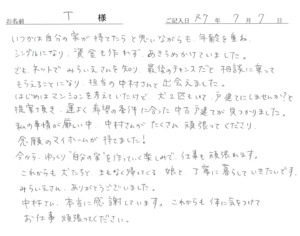 お名前 T 様 ご記入日 R7 年 7 月 7 日
いつかは自分の家が持てたらと思いながらも 年齢を重ね
シングルになり、資金も作れず あきらめかけていました。
でも、ネットで みらいえさんを知り、最後のチャンスだと 相談に乗って
もらえることになり、担当の中村さんと 出会えました。
はじめはマンションを考えていたけど、犬と広い 戸建てにしませんか?と
提案頂き、運よく 希望の条件に合った 中古戸建てが 見つかりました。
私の事情が厳しい中、中村さんが たくさん 頑張ってくださり
念願のマイホームが待てました!
今から、ゆっくり "自分の家"を作っていく楽しみで、仕事も頑張れます。
これからも 犬たちと、まもなく帰ってくる 娘と 丁寧に暮らしていきたいです。
みらいえさん、ありがとうございました。
中村さん、本当に感謝しています。これからも 体に気をつけて
お仕事 頑張ってください。